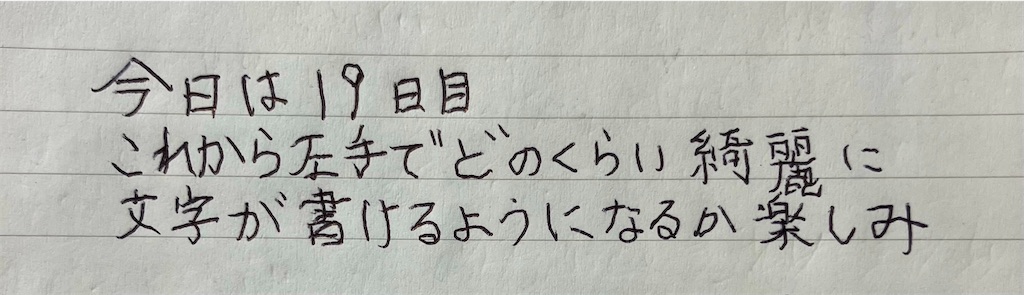 今日は19日目
これから左手でどのくらい綺麗に
文字が書けるようになるか楽しみ